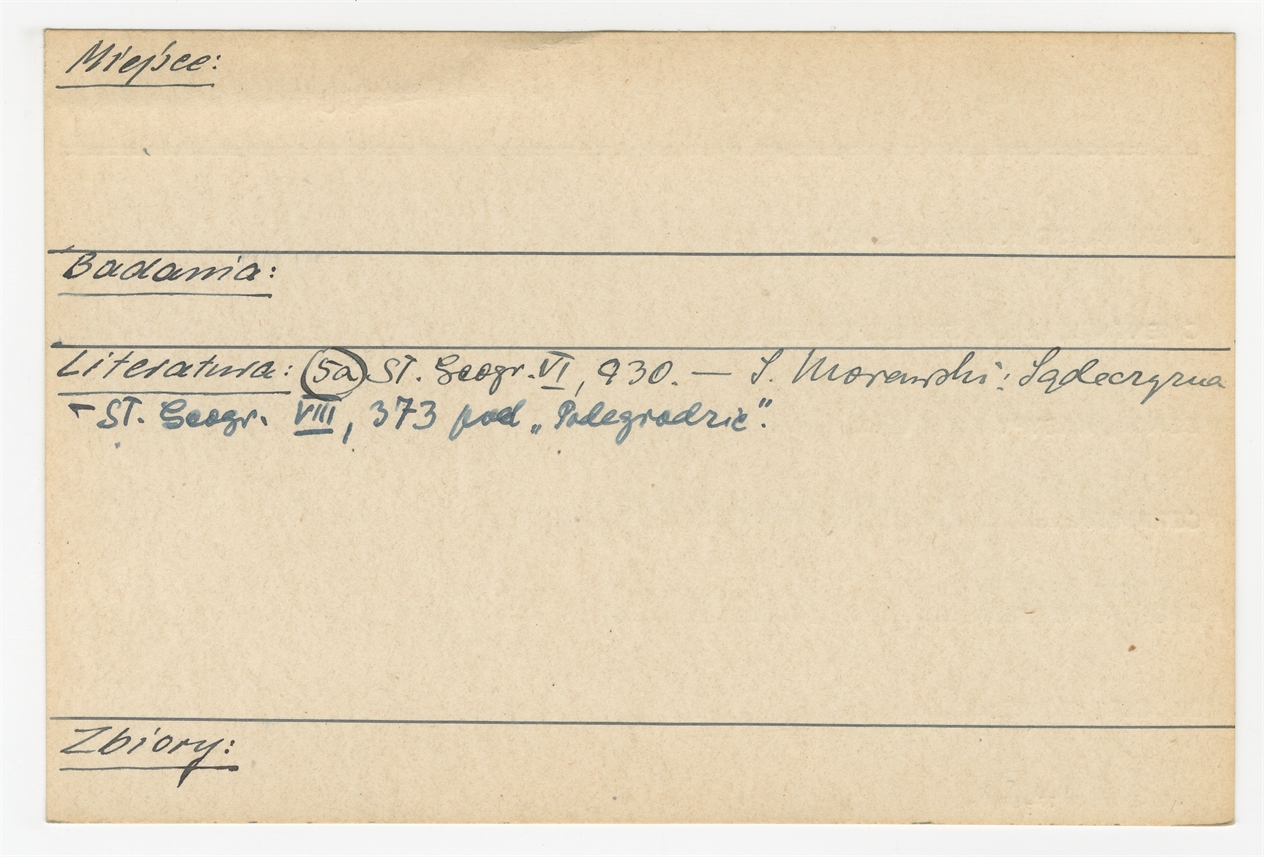 Miejsce:
Badania:
Literatura: (5a) Sł. Geogr. VI, 930. — S. Morawski: Sądeczyzna
- Sł. Geogr. VIII, 373 pod „Podegrodzie".
Zbiory: